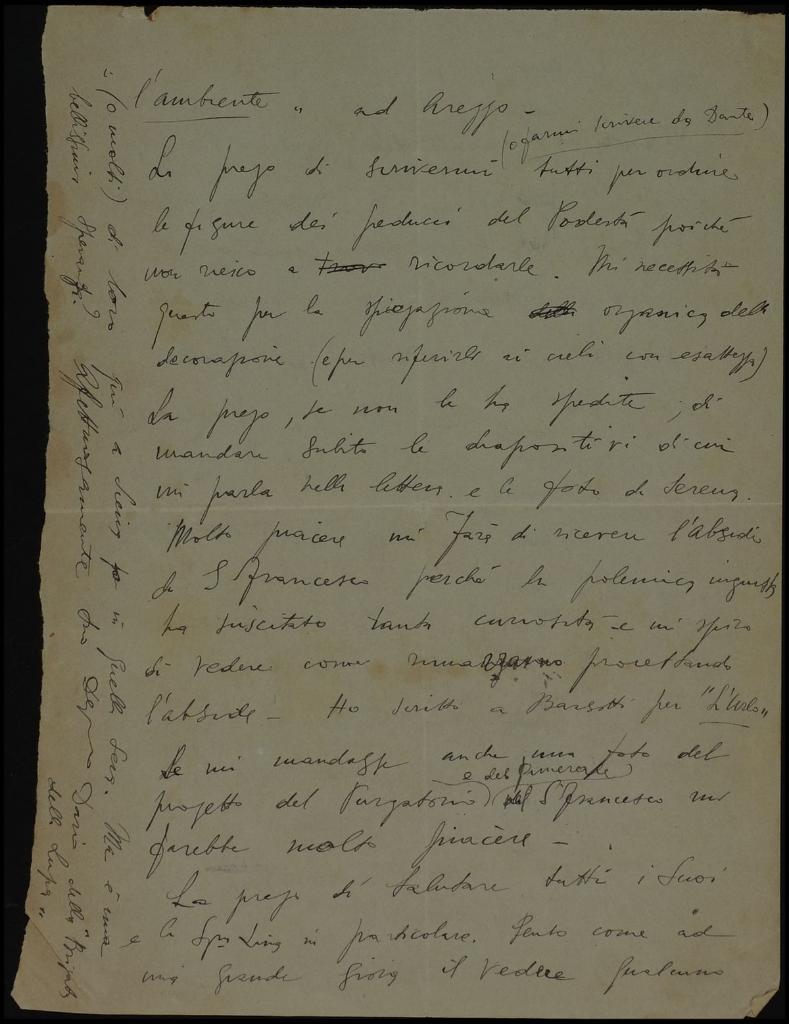 l'ambiente „ ad Arezzo -
(o farmi scrivere da Dante)
La prego di scrivermi tutti per ordine
le figure dei peducci del Podestà poiché
non riesco a trovar ricordarle. Mi necessita
questo per la spiegazione della organica della
decorazione (e per riferirle ai cieli con esattezza)
La prego, se non le ha spedite, di
mandare subito le diapositivi di cui
mi parla nella lettera. e le foto di Serena.
Molto piacere mi farà di ricevere l'abside
di S Francesco perché la polemica ingiusta
ha suscitato tanta curiosità e mi spiro
di vedere come proiettando
l'abside - Ho scritto a Barsotti per "L'Urlo„
Se mi mandasse anche una foto del
e del funerale
progetto del Purgatorio) del S Francesco mi
farebbe molto piacere -
La prego di salutare tutti i Suoi
e la Sig.na Lina in particolare. Sento come ad
una grande gioia il vedere qualcuno
(o molti) di loro qui a Siena in quella Sera. Ma è una
bellissima speranza? Affettuosamente Suo Dario della "Brigata
della Lupa„